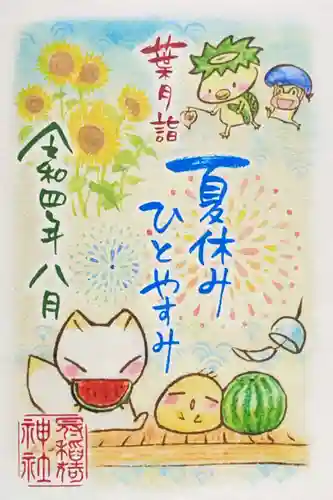 葉月詣
夏休み
ひとやすみ
令和四年八月
稲荷
神社